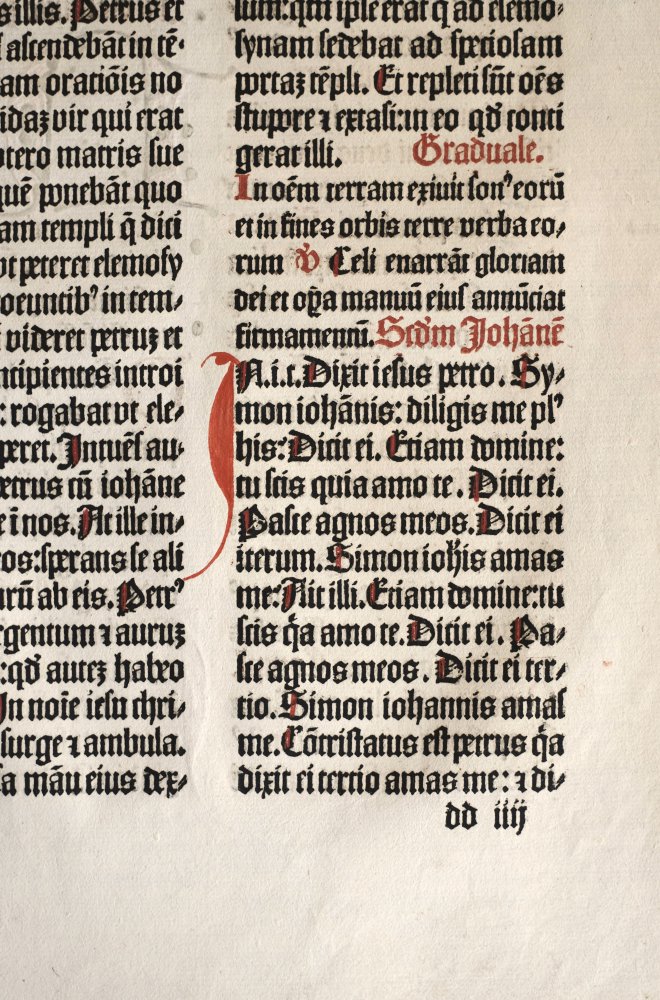 s illis. Petrus et
ascendebāt in tē⸗
am oratiōis no
idaꝫ vir qui erat
tero matris sue
quē ponebāt quo
am templi q̄ dici
vt peteret elemosy
oeuntibꝰ in tem⸗
videret petruꝫ et
ncipientes introi
: rogabat vt ele⸗
peret. Intuēs au⸗
petrus cū iohāne
e ī nos. At ille in⸗
eos: sperans se ali
urū ab eis. Petrꝰ
rgentum ⁊ auruꝫ
: qd̄ auteꝫ habeo
In noīe iesu chri⸗
surge ⁊ ambula.
a māu eius dex⸗
lum: qm̄ ipse erat q̄ ad elemo⸗
synam sedebat ad speciosam
portaꝫ tēpli. Et repleti sūt oēs
stupore ⁊ extasi: in eo qd̄ conti
gerat illi. Graduale.
In oēm terram exiuit sonꝰ eorū
et in fines orbis terre verba eo⸗
rum ℣ Celi enarrāt gloriam
dei et oꝑa manuū eius annūciat
firmamentū. Scd̄m Johānē
IN.i.t. Dixit iesus petro. Sy⸗
mon iohānis: diligis me plꝰ
his: Dicit ei. Etiam domine:
tu scis quia amo te. Dicit ei.
Paste agnos meos. Dicit ei
iterum. Simon ioh̄is amas
me: Ait illi. Etiam domine: tu
scis q̄a amo te. Dicit ei. Pa⸗
ste agnos meos. Dicit ei ter⸗
tio. Simon iohannis amas
me. Cōtristatus est petrus q̄a
dixit ei tertio amas me: ⁊ di⸗
dd iiij